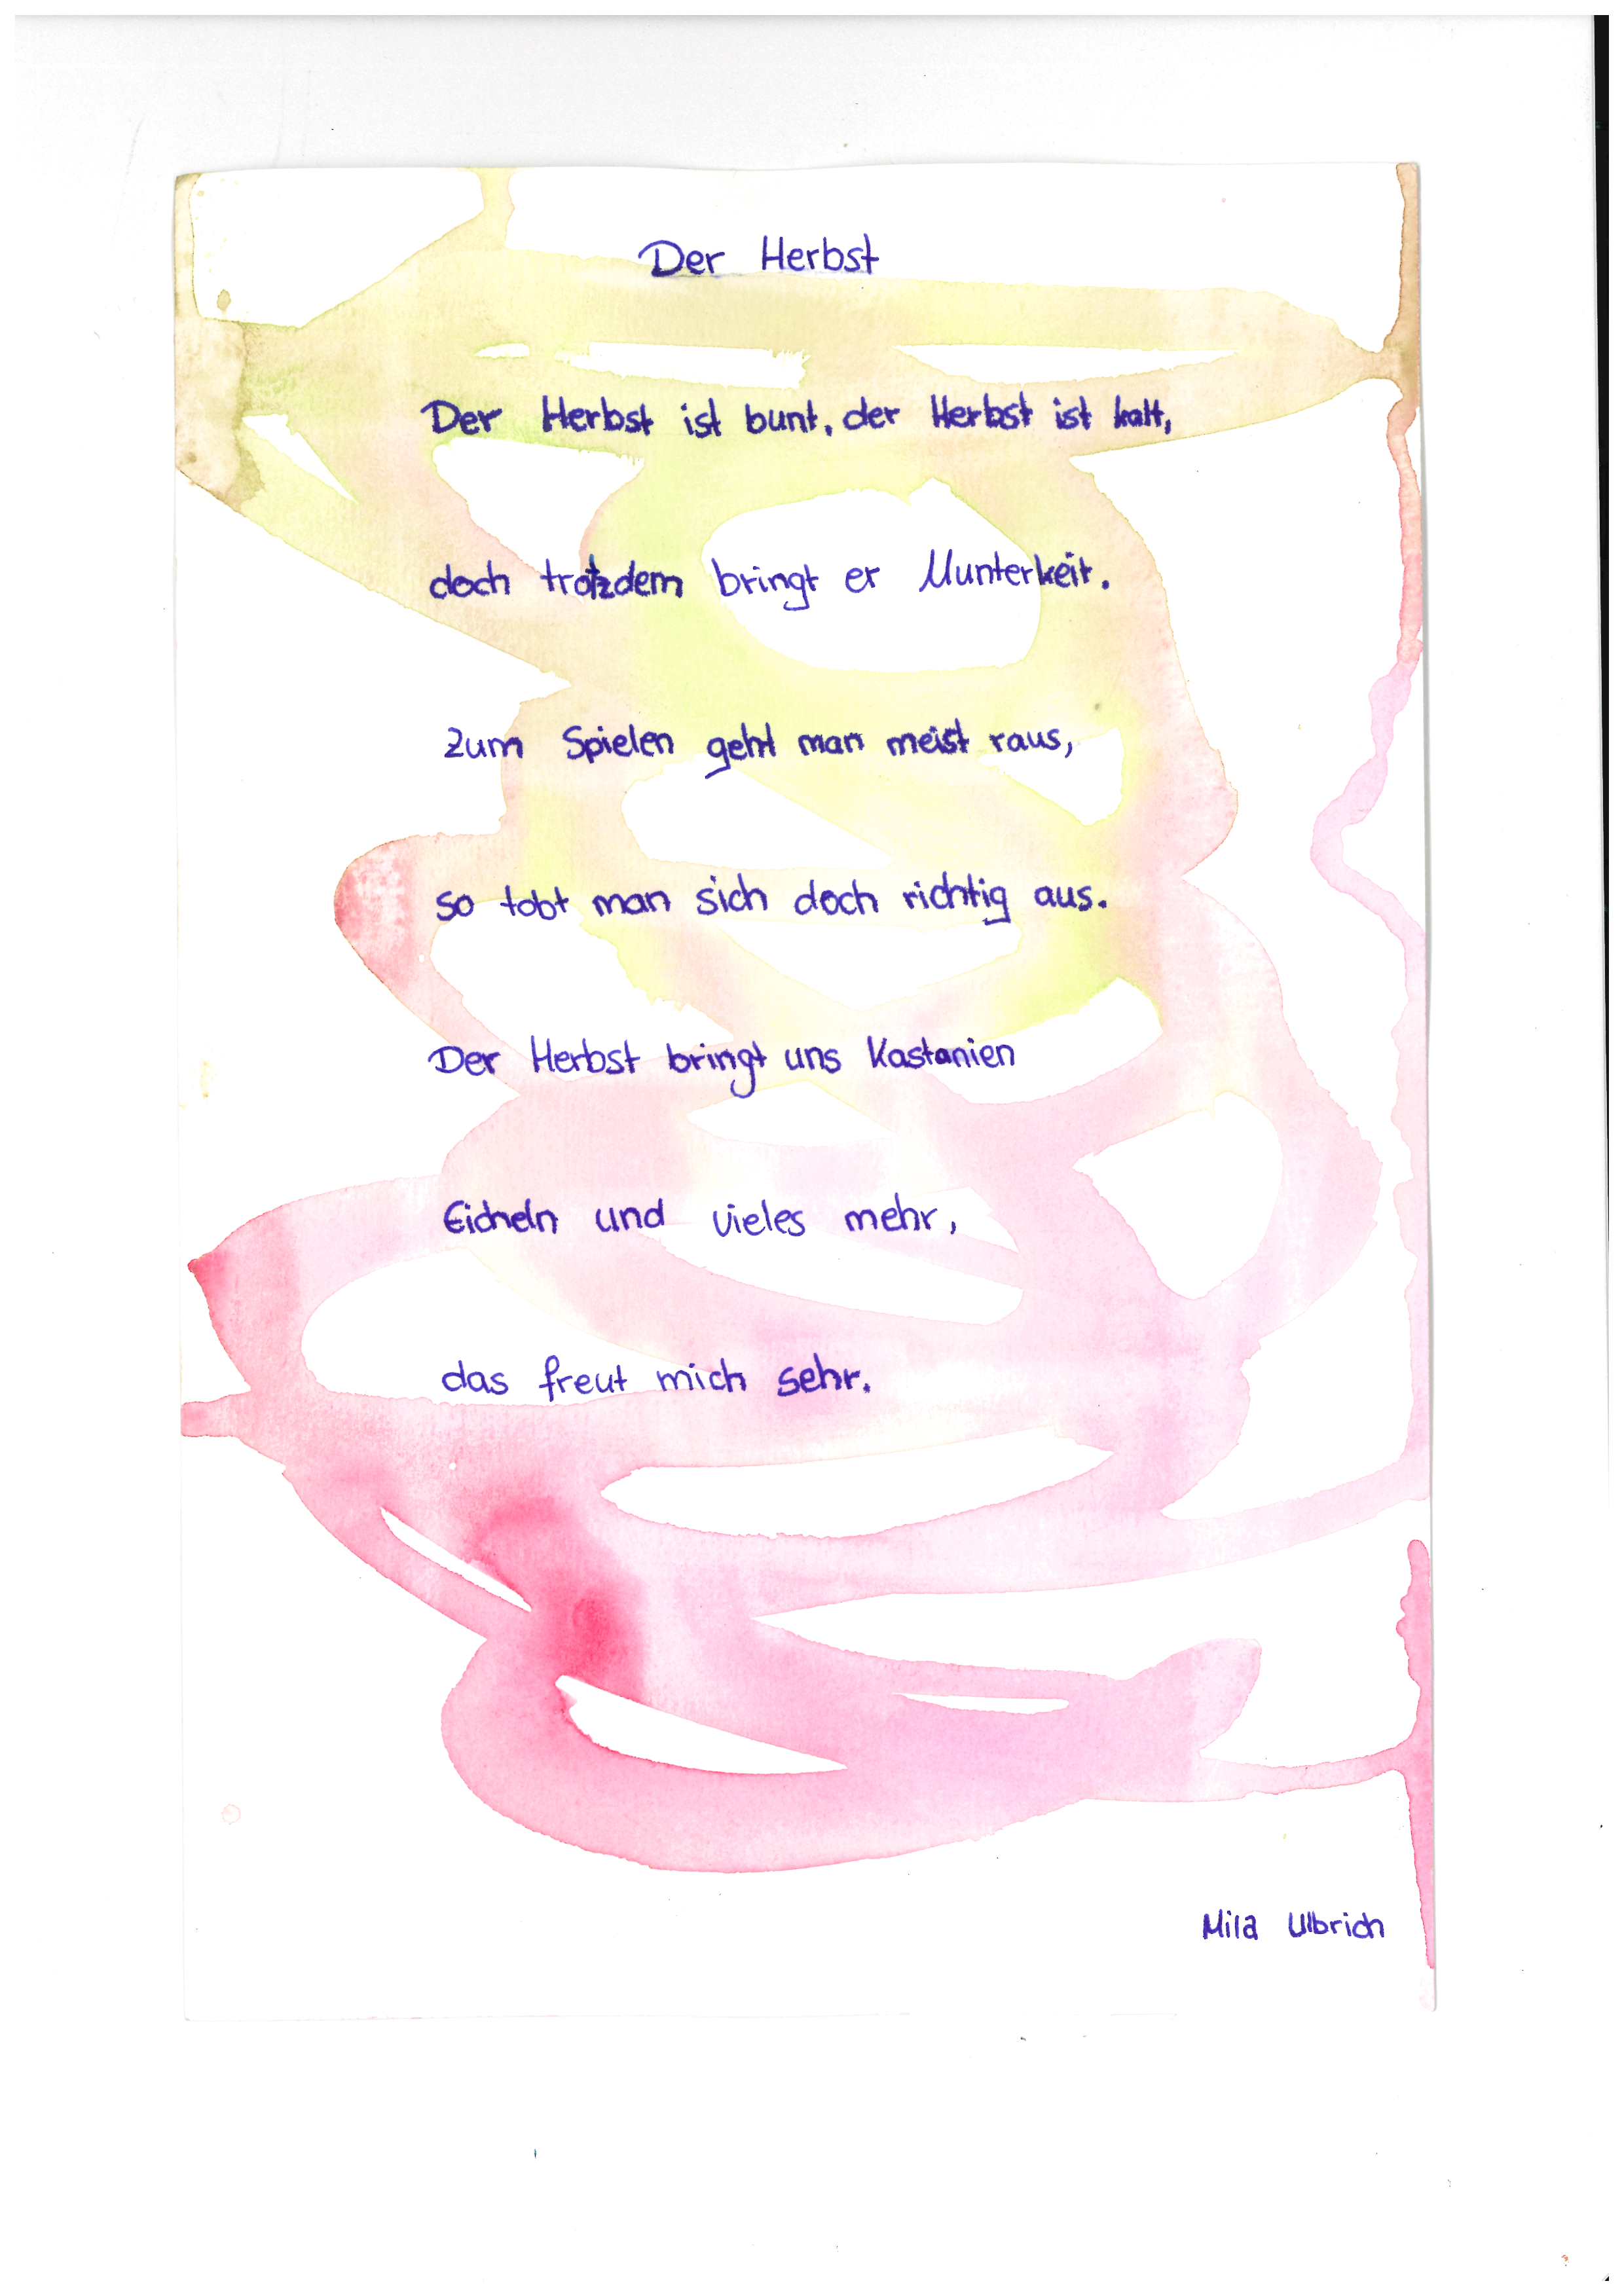 Der Herbst
Der Herbst ist bunt, der Herbst ist kalt,
doch trotzdem bringt er Munterkeit.
Zum Spielen geht man meist raus,
so tobt man sich doch richtig aus.
Der Herbst bringt uns Kastanien
Eicheln und vieles mehr,
das freut mich sehr.
Mila Ulbrich